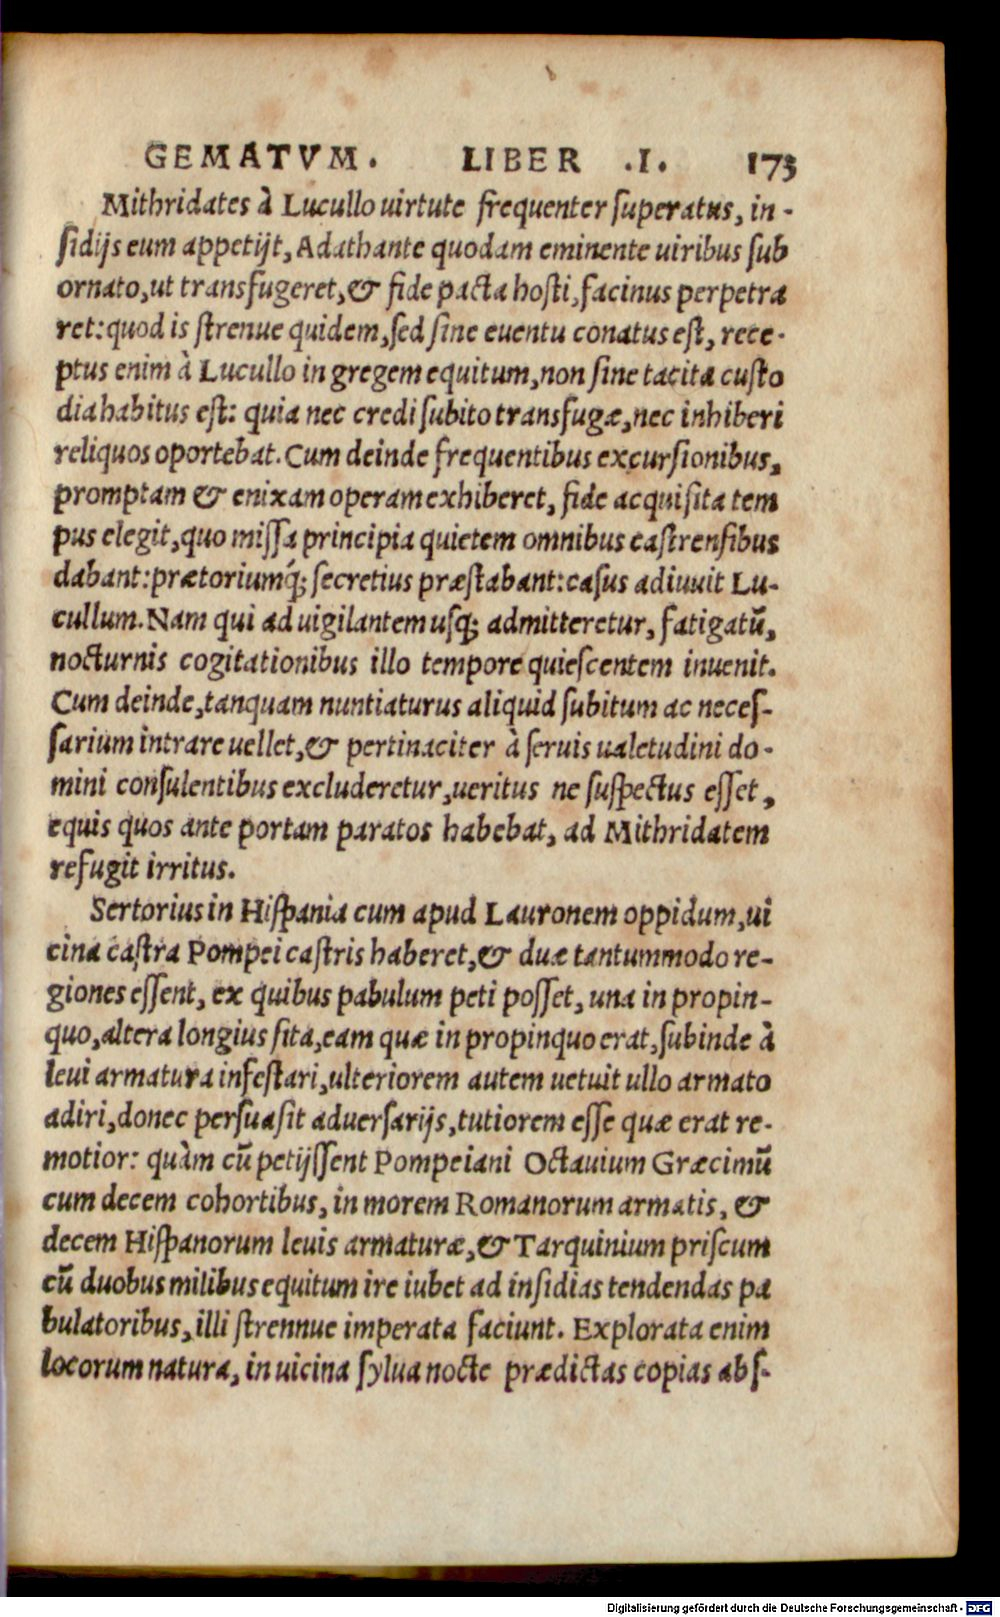 GEMATVM. LIBER .I. 173
Mithridates à Lucullo uirtute frequenter superatus, in-
sidijs eum appetijt, Adathante quodam eminente uiribus sub
ornato, ut transfugeret, & fide pacta hosti, facinus perpetra
ret: quod is strenue quidem, sed sine euentu conatus est, rece-
ptus enim à Lucullo in gregem equitum, non sine tacita custo
dia habitus est: quia nec credi subito transfugæ, nec inhiberi
reliquos oportebat. Cum deinde frequentibus excursionibus,
promptam & enixam operam exhiberet, fide acquisita tem
pus elegit, quo missa principia quietem omnibus castrensibus
dabant: prætoriumq́; secretius præstabant: casus adiuuit Lu-
cullum. Nam qui ad uigilantem usq; admitteretur, fatigatũ,
nocturnis cogitationibus illo tempore quiescentem inuenit.
Cum deinde, tanquam nuntiaturus aliquid subitum ac neces-
sarium intrare uellet, & pertinaciter à seruis ualetudini do-
mini consulentibus excluderetur, ueritus ne suspectus esset,
equis quos ante portam paratos habebat, ad Mithridatem
refugit irritus.
Sertorius in Hispania cum apud Lauronem oppidum, ui
cina castra Pompei castris haberet, & duæ tantummodo re-
giones essent, ex quibus pabulum peti posset, una in propin-
quo, altera longius sita, eam quæ in propinquo erat, subinde à
leui armatura infestari, ulteriorem autem uetuit ullo armato
adiri, donec persuasit aduersarijs, tutiorem esse quæ erat re-
motior: quàm cũ petijssent Pompeiani Octauium Græcimũ
cum decem cohortibus, in morem Romanorum armatis, &
decem Hispanorum leuis armaturæ, & Tarquinium priscum
cũ duobus milibus equitum ire iubet ad insidias tendendas pa
bulatoribus, illi strennue imperata faciunt. Explorata enim
locorum natura, in uicina sylua nocte prædictas copias abs-
Digitalisierung gefördert durch die Deutsche Forschungsgemeinschaft - DFG